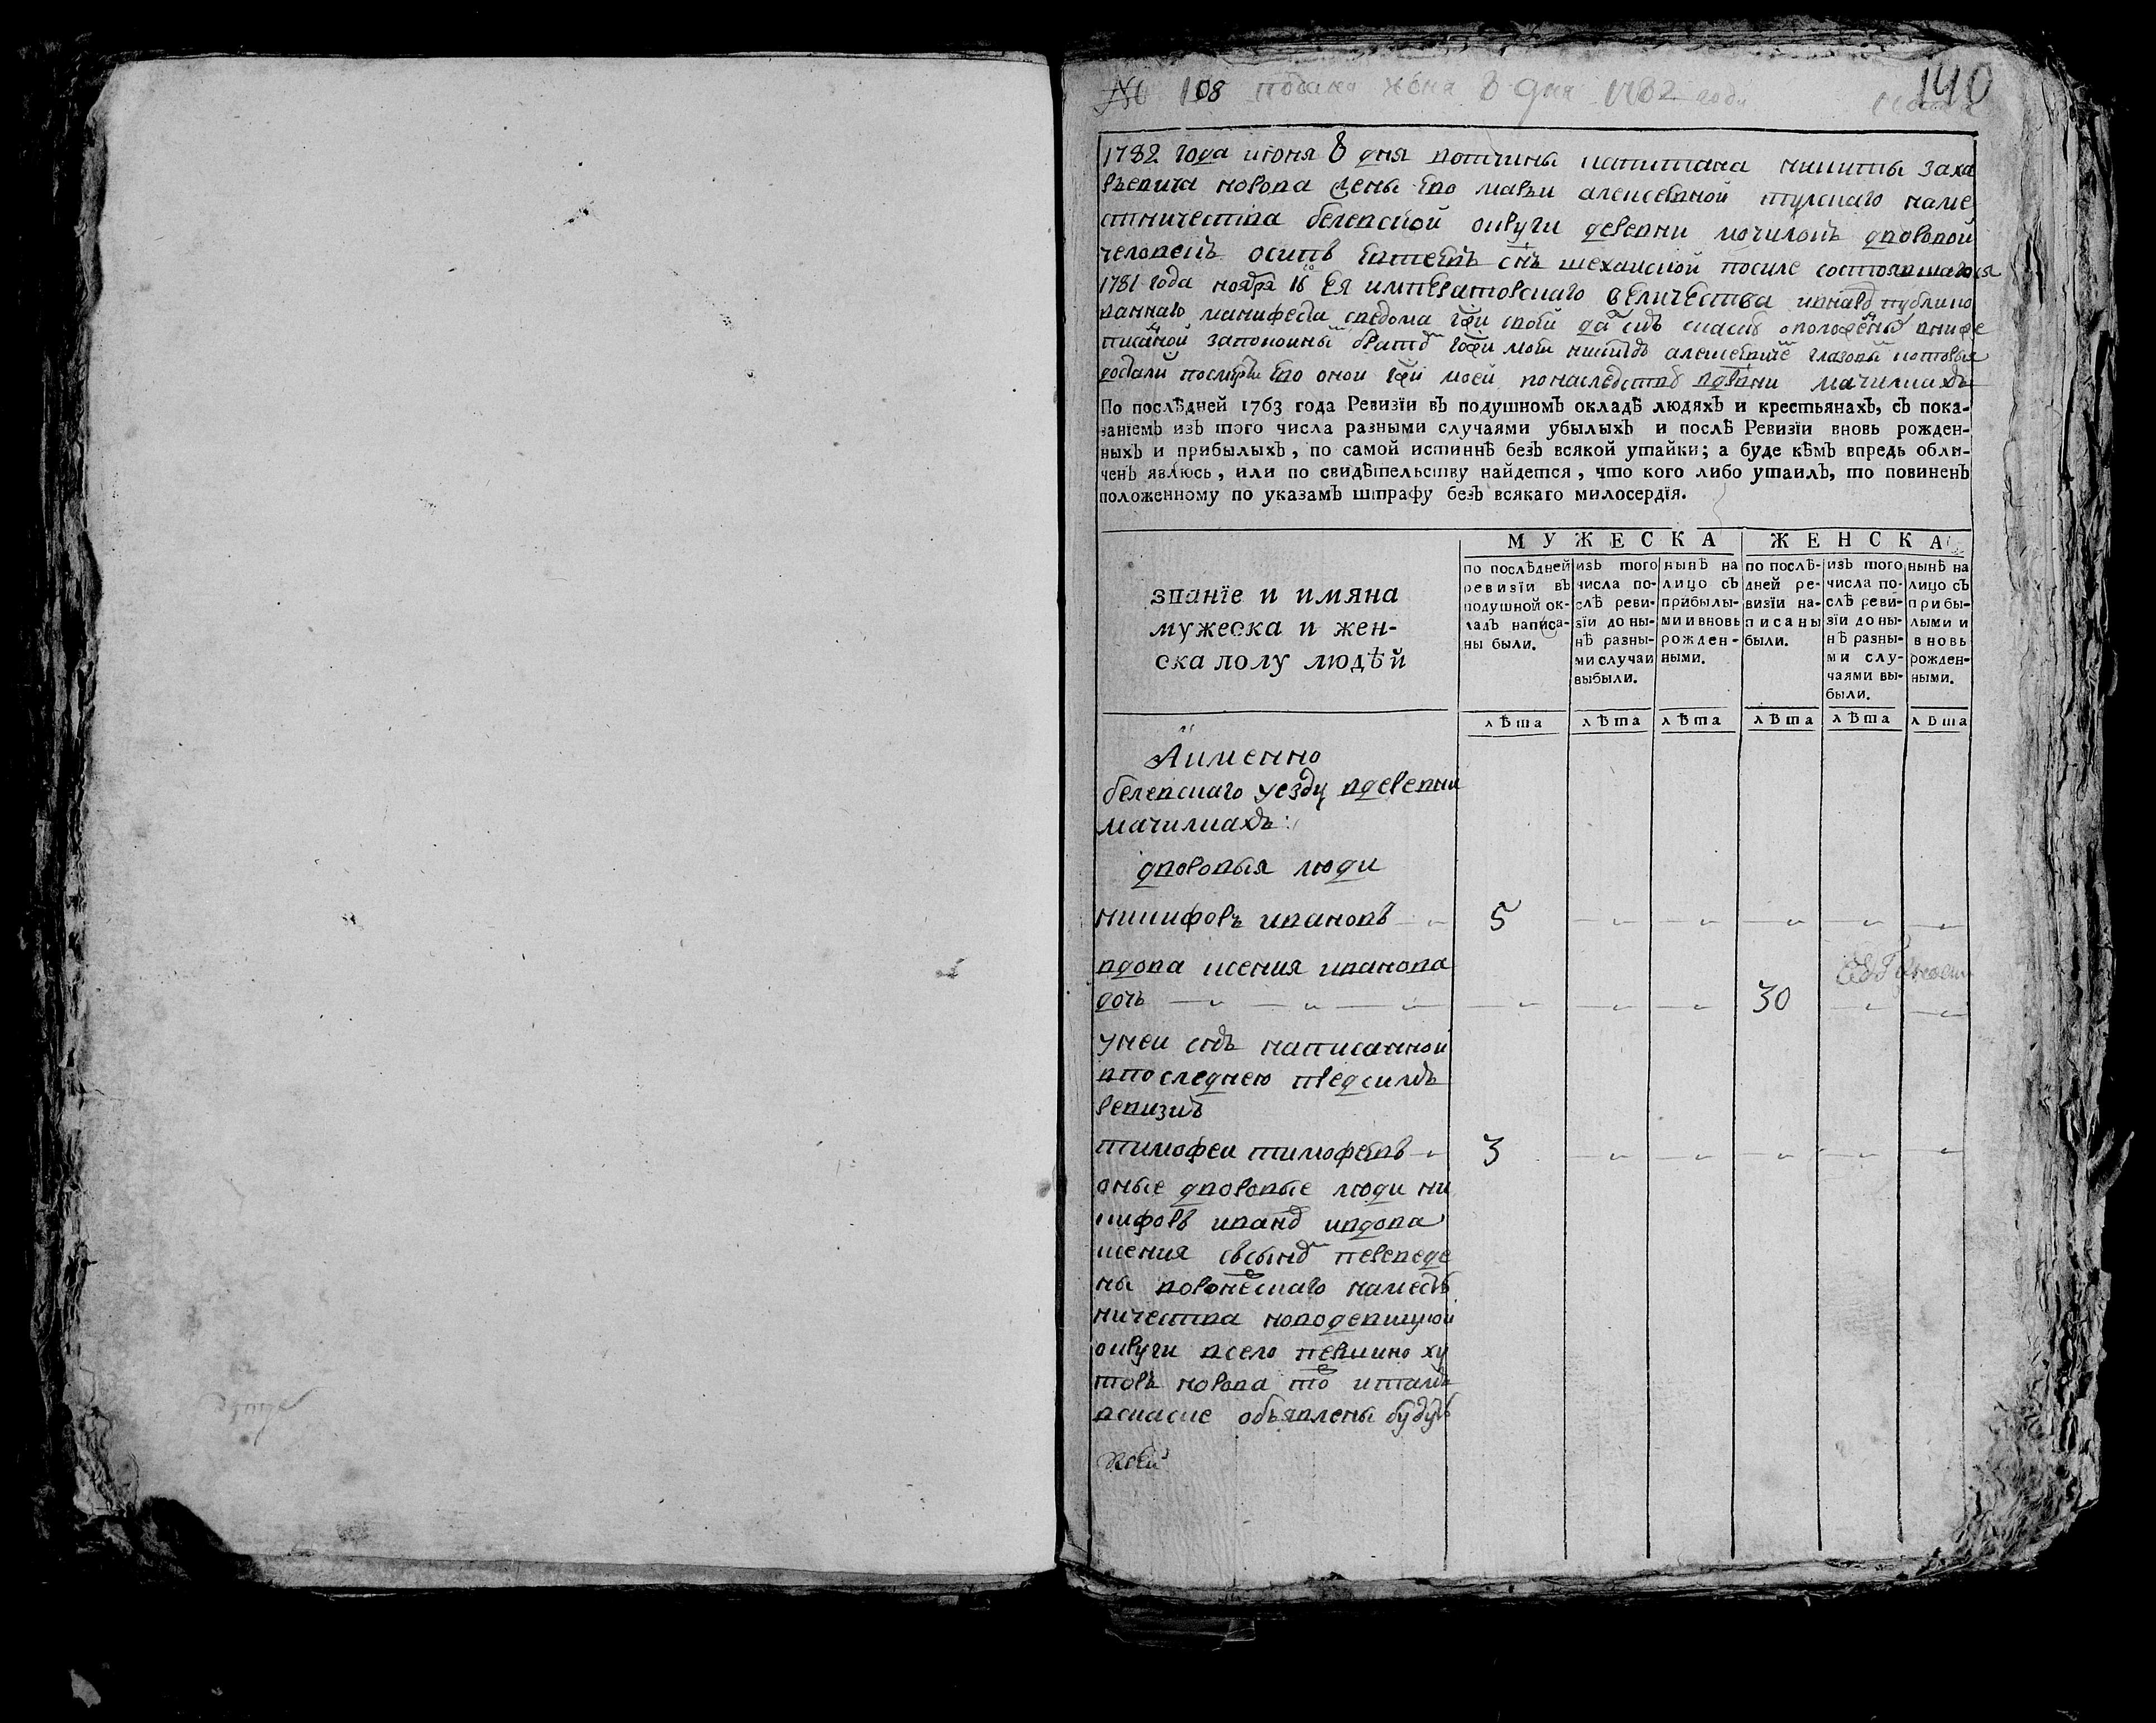 № 108 подана июня 8 дня 1782 года
140
1782 года июня 8 дня вотчины капитана никиты заха
рьевича норова жены ево марьи алексевной тулскаго наме
стничества белевской округи деревни мочилокъ дворовой
человекъ осипъ евтеевъ снъ шеханской после состоявшагося
1781 года ноября 16 го Ея императорскаго величества
манифеста сведома гжи своей далъ сию
гжи моей
досталис после ево оной гжи моей понаследству вдевни мачилкахъ
По послѣдней 1763 года Ревизїи въ подушномъ окладѣ людяхъ и крестьянахъ, съ пока-
занїемъ изъ того числа разными случаями убылыхъ и послѣ Ревизїи вновь рожден-
ныхъ и прибылыхъ, по самой истиннѣ безъ всякой утайки; а буде кѣмъ впредь обли-
ченъ явлюсь, или по свидѣтельству найдется, что кого либо утаилъ, то повиненъ
положенному по указамъ штрафу безъ всякаго милосердїя.
званїе и имяна
мужеска и жен-
ска полу людѣй
МУЖЕСКА
ЖЕНСКА
по послѣдней
ревизїи въ
подушной ок-
ладъ написа-
ны были.
изъ того
числа по-
слѣ реви-
зїи до ны-
нѣ разны-
ми случаи
выбыли.
нынѣ на
лицо съ
прибылы-
ми и вновь
рожден-
ными.
по послѣ-
дней ре-
визїи на-
писаны
были.
изъ того
числа по-
слѣ реви-
зїи до ны-
нѣ разны-
ми слу-
чаями вы-
были.
нынѣ на
лицо съ
прибы-
лыми и
вновь
рожден-
ными.
лѣта лѣта лѣта лѣта лѣта лѣта
Аименно
белевскаго уезду вдеревни
мачилкахъ:
дворовыя люди
никифоръ ивановъ 5
вдова ксения иванова
дочь 30
унеи снъ написанной
впоследнею предсимъ
ревизию
тимофеи тимофеевъ 3
оные дворовые люди ни
кифоръ иванов ивдова
ксения ссыном переведе
ны воронежскаго намест
ничества новодевицкой
округи всело першино ху
торъ норова то итамъ
вскаске объявлены будутъ